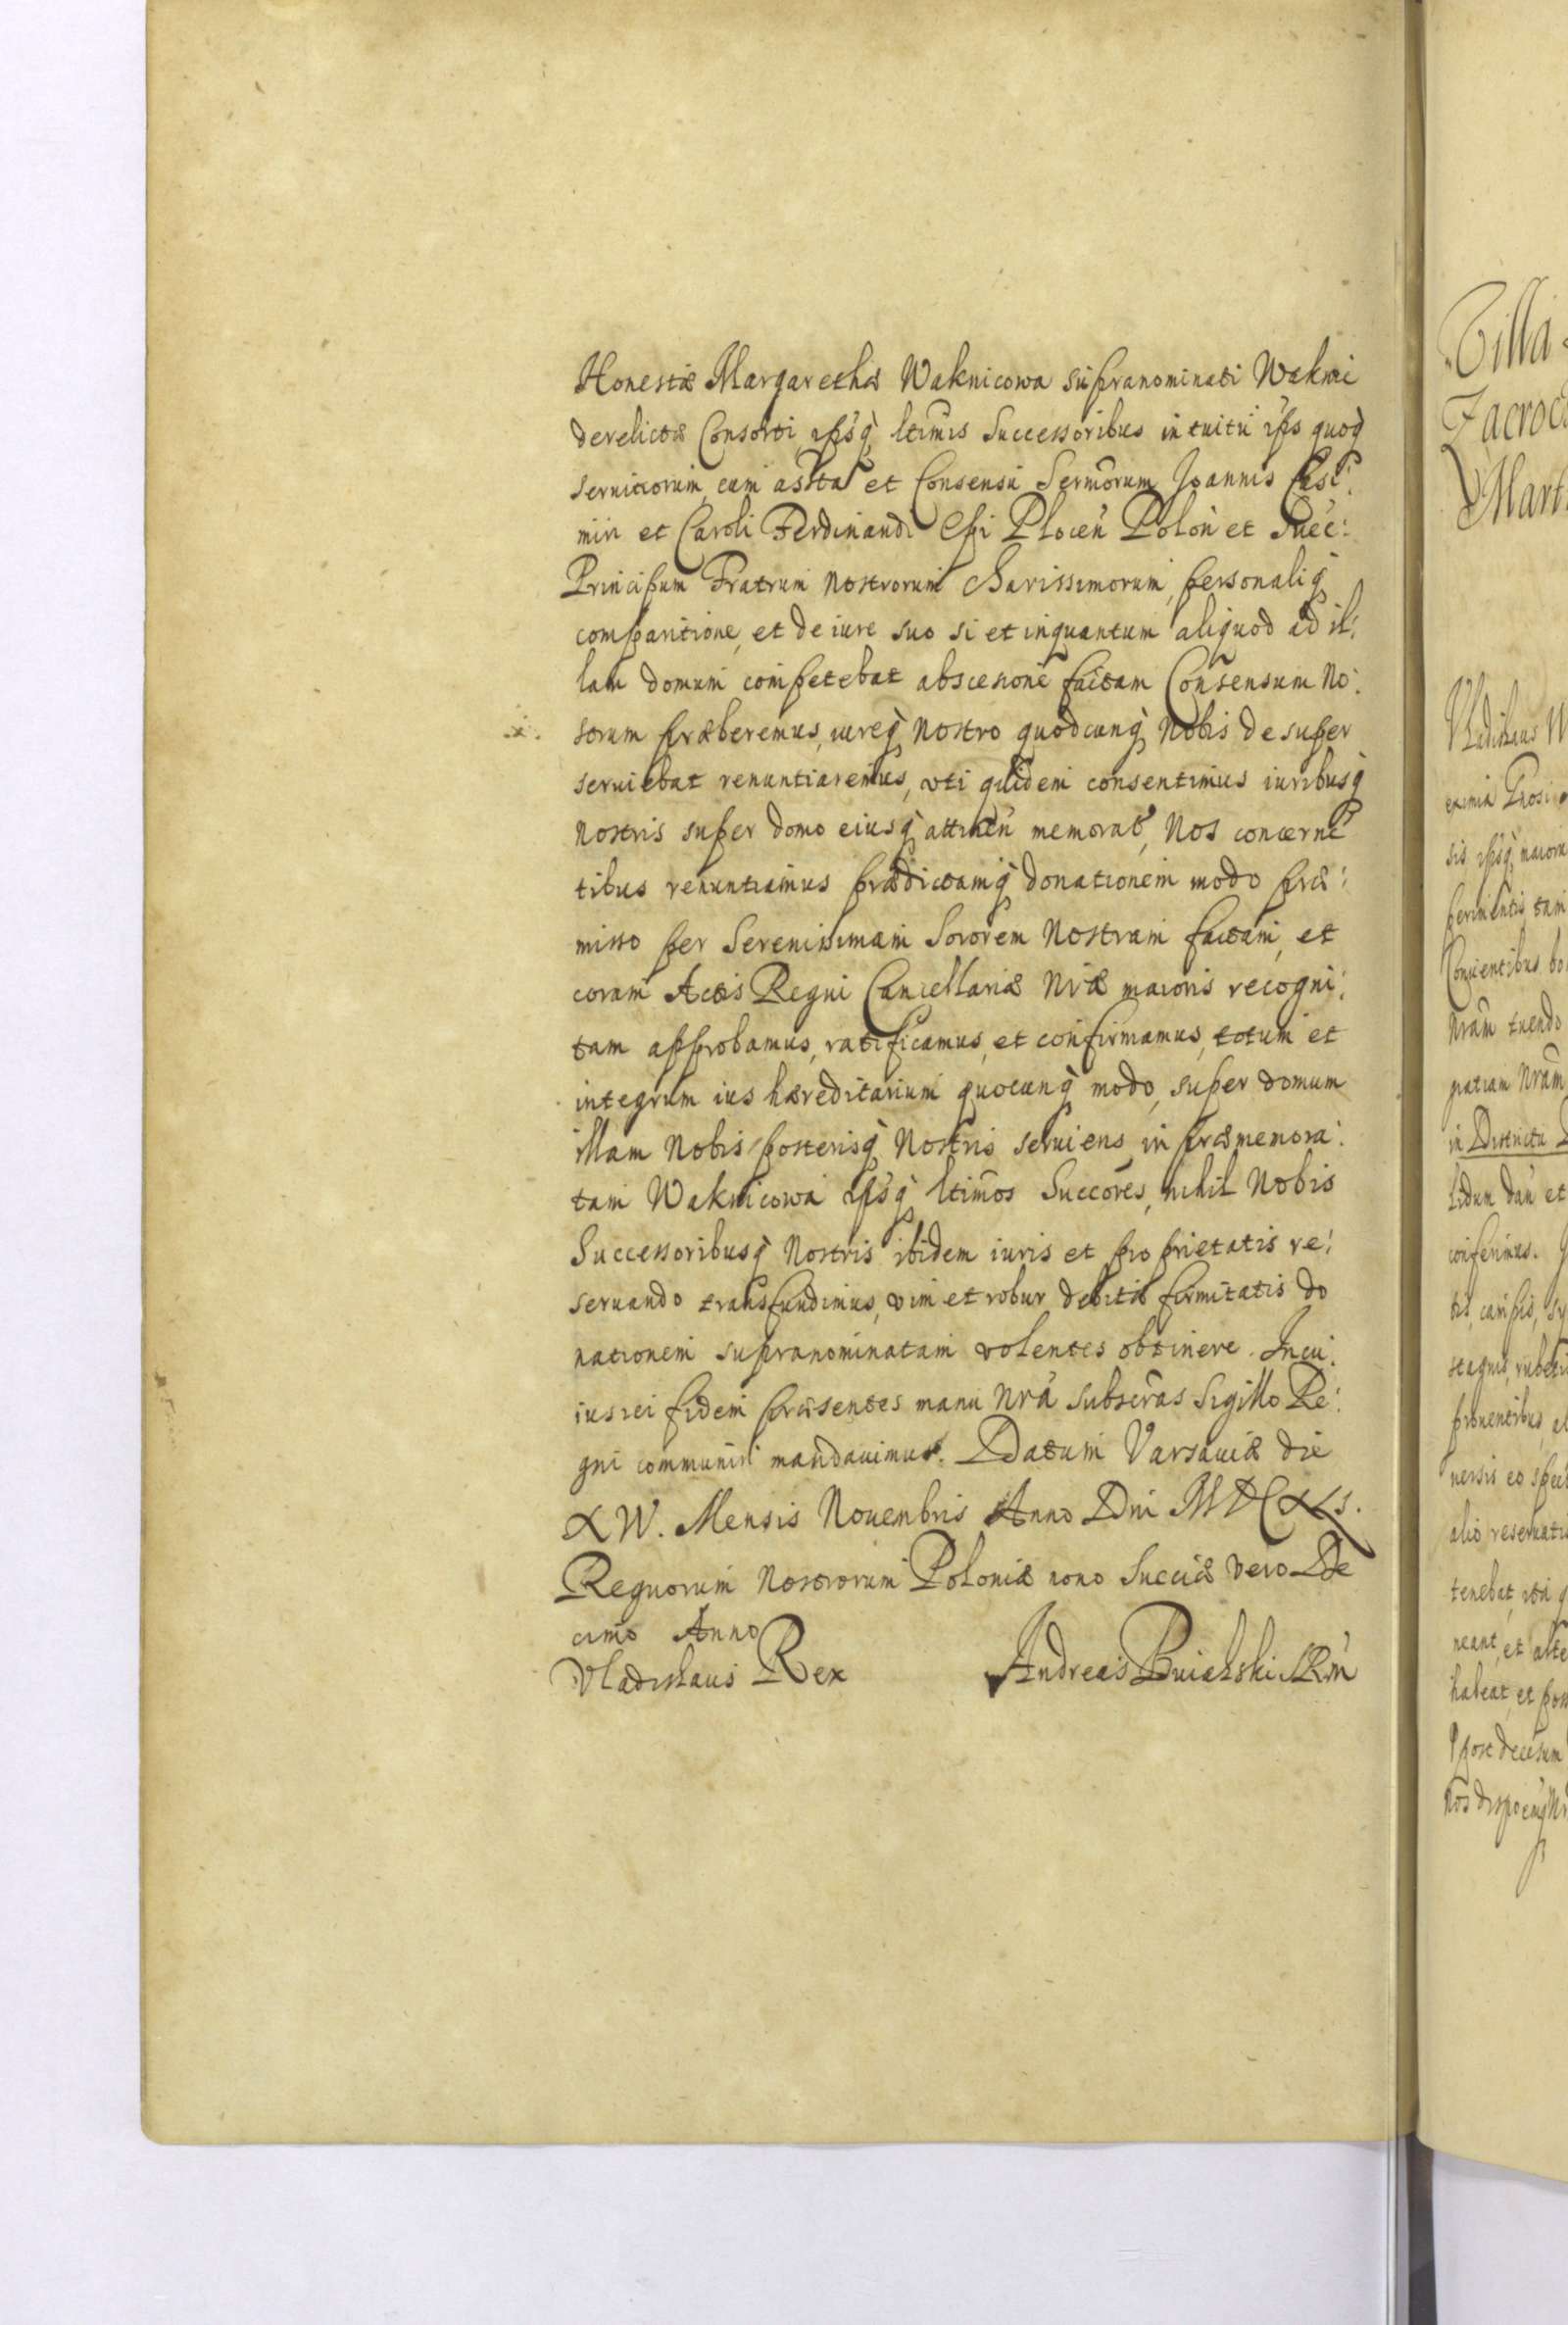 Honestæ Margarethæ Waknicowa supranominati Waknic
derelictæ Consorti, ipsiq ltimis Successoribus intuitu ipsius quoq
seruitiorum, cum assta et Consensu Sermorum Joannis Casi:
miri et Caroli Ferdinandi Epi Plocen Polon et Suec:
Principum Fratrum Nostrorum Charissimorum, personaliq
comparitione, et de iure suo si et inquantum aliquod ad il:
lam domum competebat abscesione factam Consensum No:
strum præberemus, iureq Nostro quodcunq Nobis de super
seruiebat renuntiaremus, vti quidem consentimus iuribusq
nostris super domo eiusq attinen memorat, Nos concerne
tibus renuntiamus prædictamq donationem modo præ:
misso per Serenissimam Sororem Nostram factam, et
coram Actis Regni Cancellariæ Nræ maioris recogni:
tam approbamus, ratificamus, et confirmamus, totum et
integrum ius hæreditarium quocunq modo, super domum
illam Nobis posterisq Nostris seruiens, in præmemora:
tam Waknicowa ipsq ltimos Succores, nihil Nobis
Successoribusq Nostris ibidem iuris et proprietatis re:
seruando transfundimus, vim et robur debitæ firmitatis do
nationem supranominatam volentes obtinere. In cu:
ius rei fidem præsentes manu Nra subscras Sigillo Re:
gni communiri mandauimus. Datum Varsauiæ die
XIV. Mensis Nouenbris Anno Dni MDCXLI.
Regnorum Nostrorum Poloniæ nono Sueciæ vero De
cimo Anno
Vladislaus Rex Andreas
Villa
Zacroc
Mart
Vladislaus
eximia
sis ipsq maiora
perimentis tam
bo
Nram tuendo
gratiam Nram
in Districtu
et
conferimus.
tis, campis, sy
stagnis, rubetis
prouentibus, al
uersis eo
alio reseruatis
tenebat, ita
neant, et
habeat, et poss
post decessum
Nos